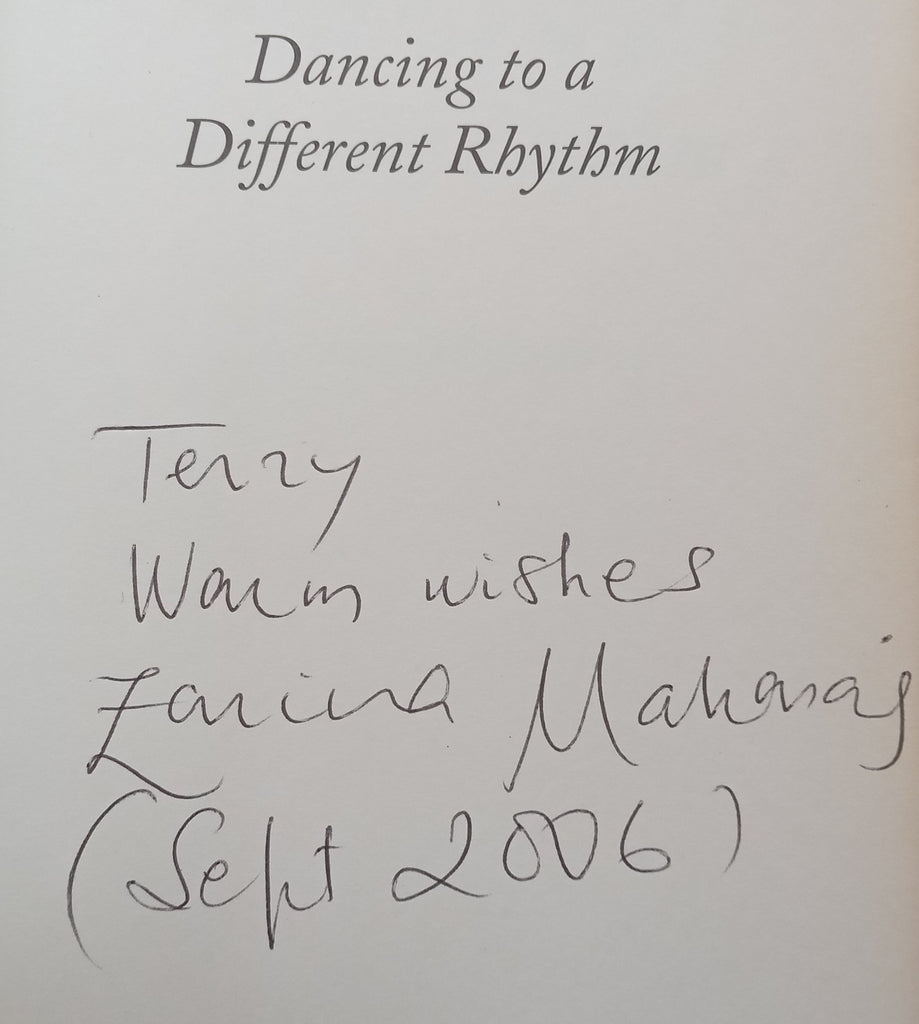 Dancing to a
Different Rhythm
Terry
Warm wishes
Zarina Maharaj
(Sept 2006)